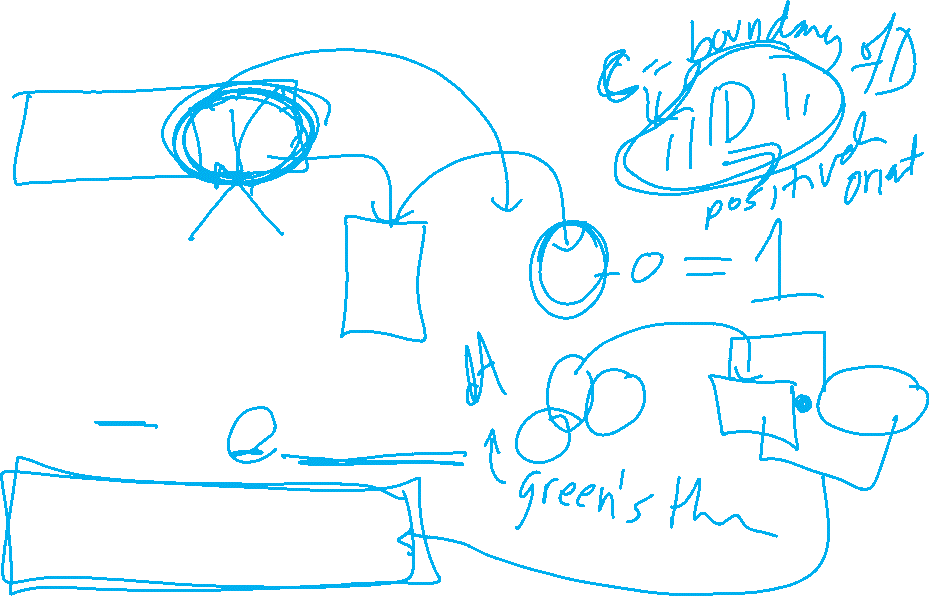 C = boundary of D
D
positived
oriat
- 0 = 1
Green's thm